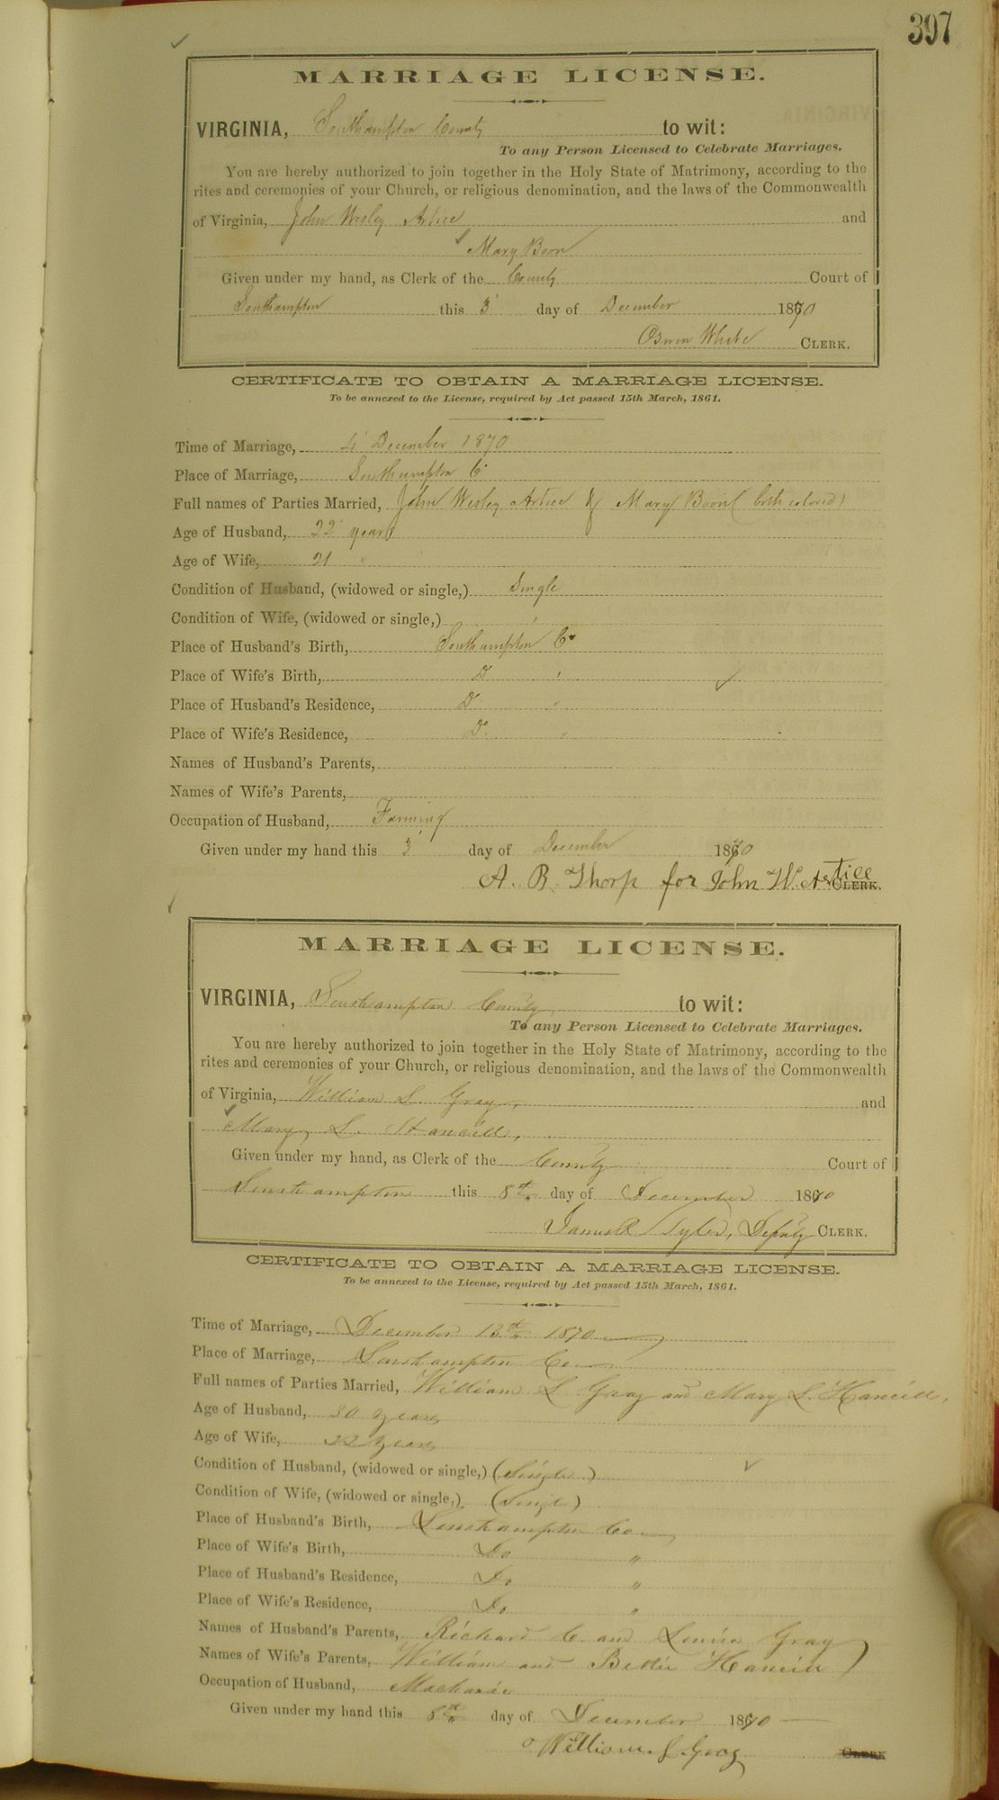 397
MARRIAGE LICENSE.
VIRGINIA, Southampton County to wit:
To any Person Licensed to Celebrate Marriages.
You are hereby authorized to join together in the Holy State of Matrimony, according to the
rites and ceremonies of your Church, or religious denomination, and the laws of the Commonwealth
of Virginia, John Wesley Artice and
Mary Boon
Given under my hand, as Clerk of the County Court of
Southampton this 3 day of December 1870
White CLERK.
CERTIFICATE TO OBTAIN A MARRIAGE LICENSE.
To be annexed to the License, required by Act passed 15th March, 1861.
Time of Marriage, 4 December 1870
Place of Marriage, Southampton Co
Full names of Parties Married, John Wesley Artice & Mary Boon (both colored)
Age of Husband, 22 years
Age of Wife, 21 "
Condition of Husband, (widowed or single,) Single
Condition of Wife, (widowed or single,) "
Place of Husband's Birth, Southampton Co
Place of Wife's Birth, Do "
Place of Husband's Residence, Do "
Place of Wife's Residence, Do "
Names of Husband's Parents,
Names of Wife's Parents,
Occupation of Husband, Farming
Given under my hand this 3 day of December 1870
A. B. Thorp for John W. Artice CLERK.
MARRIAGE LICENSE.
VIRGINIA, Southampton County to wit:
To any Person Licensed to Celebrate Marriages.
You are hereby authorized to join together in the Holy State of Matrimony, according to the
rites and ceremonies of your Church, or religious denomination, and the laws of the Commonwealth
of Virginia, William S. Gray, and
Mary L.
Given under my hand, as Clerk of the County Court of
Southampton this 8th day of December 1870
Tyler, Deputy CLERK.
CERTIFICATE TO OBTAIN A MARRIAGE LICENSE.
To be annexed to the License, required by Act passed 15th March, 1861.
Time of Marriage, December 13th 1870
Place of Marriage, Southampton Co
Full names of Parties Married, William S Gray and Mary L.
Age of Husband, 30 years
Age of Wife, 22 years
Condition of Husband, (widowed or single,) (Single)
Condition of Wife, (widowed or single,) (Single)
Place of Husband's Birth, Southampton Co
Place of Wife's Birth, Do "
Place of Husband's Residence, Do "
Place of Wife's Residence, Do "
Names of Husband's Parents, Richard C. and Louisa Gray
Names of Wife's Parents, William and Bettie
Occupation of Husband, Machanic
Given under my hand this 8th day of December 1870
William S Gray CLERK